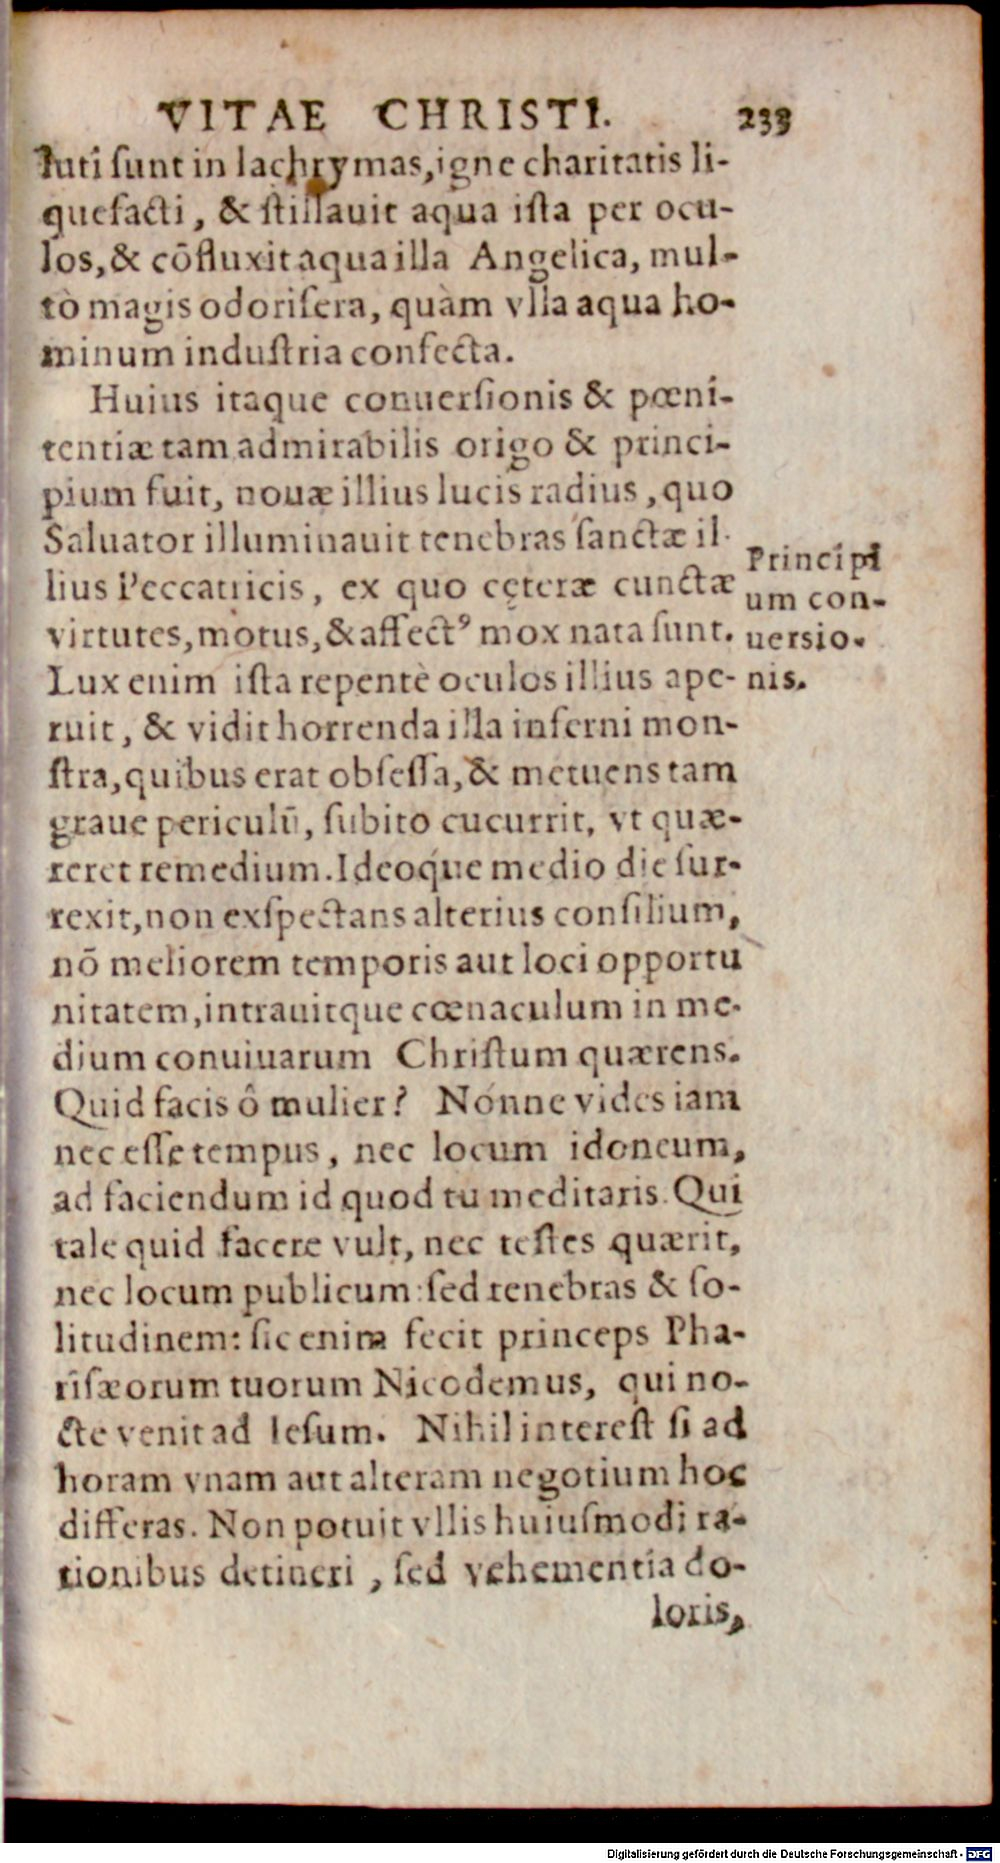 VITAE CHRISTI. 233
luti ſunt in lachrymas, igne charitatis li-
quefacti, & ſtillauit aqua iſta per ocu-
los, & cōfluxit aqua illa Angelica, mul-
tò magis odorifera, quàm vlla aqua ho-
minum induſtria confecta.
Huius itaque conuerſionis & pœni-
tentiæ tam admirabilis origo & princi-
pium fuit, nouæ illius lucis radius, quo
Saluator illuminauit tenebras ſanctæ il-
lius Peccatricis, ex quo cęteræ cunctæ
virtutes, motus, & affectꝰ mox nata ſunt.
Lux enim iſta repentè oculos illius ape-
ruit, & vidit horrenda illa inferni mon-
ſtra, quibus erat obſeſſa, & metuens tam
graue periculū, ſubito cucurrit, vt quæ-
reret remedium. Ideoque medio die ſur-
rexit, non exſpectans alterius conſilium,
nō meliorem temporis aut loci opportu
nitatem, intrauitque cœnaculum in me-
dium conuiuarum Chriſtum quærens.
Quid facis ô mulier? Nónne vides iam
nec eſſe tempus, nec locum idoneum,
ad faciendum id quod tu meditaris. Qui
tale quid facere vult, nec teſtes quærit,
nec locum publicum: ſed tenebras & ſo-
litudinem: ſic enim fecit princeps Pha-
riſæorum tuorum Nicodemus, qui no-
cte venit ad Ieſum. Nihil intereſt ſi ad
horam vnam aut alteram negotium hoc
differas. Non potuit vllis huiuſmodi ra-
tionibus detineri, ſed vehementia do-
loris,
Principi
um con-
uersio-
nis.
Digitalisierung gefördert durch die Deutsche Forschungsgemeinschaft - DFG